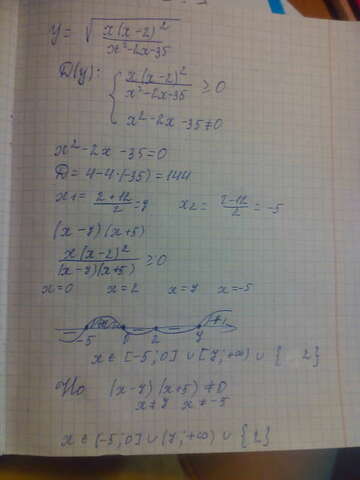 y = √(x(x-2)² / (x²-2x-35))
D(y): { x(x-2)² / (x²-2x-35) ≥ 0
x² - 2x - 35 ≠ 0
x² - 2x - 35 = 0
D = 4 - 4·(-35) = 144
x₁ = (2+12)/2 = 7 x₂ = (2-12)/2 = -5
(x-7)(x+5)
x(x-2)² / ((x-7)(x+5)) ≥ 0
x=0 x=2 x=7 x=-5
5 0 2 7
x ∈ [-5;0] ∪ [7;+∞) ∪ { 2}
Но (x-7)(x+5) ≠ 0
x≠7 x≠-5
x ∈ (-5;0] ∪ (7;+∞) ∪ {2}